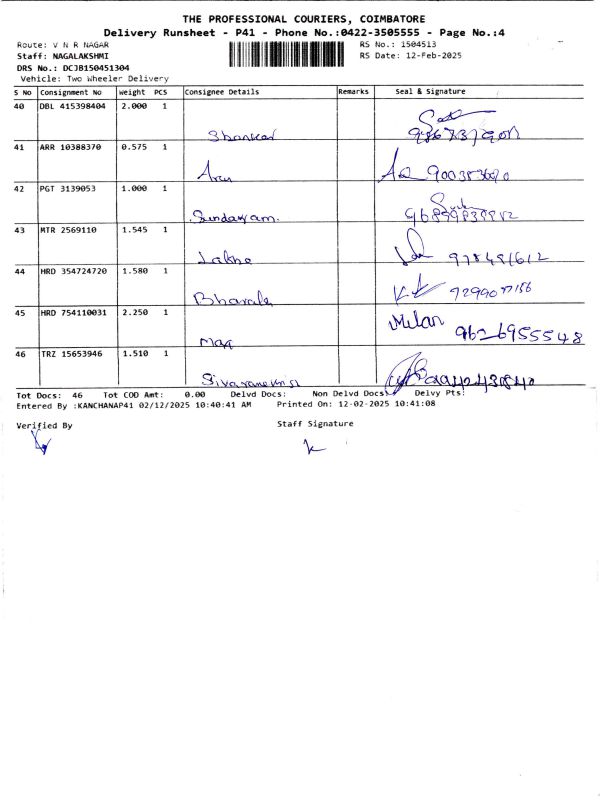 THE PROFESSIONAL COURIERS, COIMBATORE
Delivery Runsheet - P41 - Phone No.:0422-3505555 - Page No.:4
Route: V N R NAGAR RS No.: 1504513
Staff: NAGALAKSHMI RS Date: 12-Feb-2025
DRS No.: DCJB150451304
Vehicle: Two Wheeler Delivery
S No Consignment No Weight PCS Consignee Details Remarks Seal & Signature
40 DBL 415398404 2.000 1
Shankar
41 ARR 10388370 0.575 1
Arun
42 PGT 3139053 1.000 1
Sundaram.
43 MTR 2569110 1.545 1
44 HRD 354724720 1.580 1
45 HRD 754110031 2.250 1
Milan
9626955548
46 TRZ 15653946 1.510 1
Tot Docs: 46 Tot COD Amt: 0.00 Delvd Docs: Non Delvd Docs: Delvy Pts:
Entered By :KANCHANAP41 02/12/2025 10:40:41 AM Printed On: 12-02-2025 10:41:08
Verified By Staff Signature